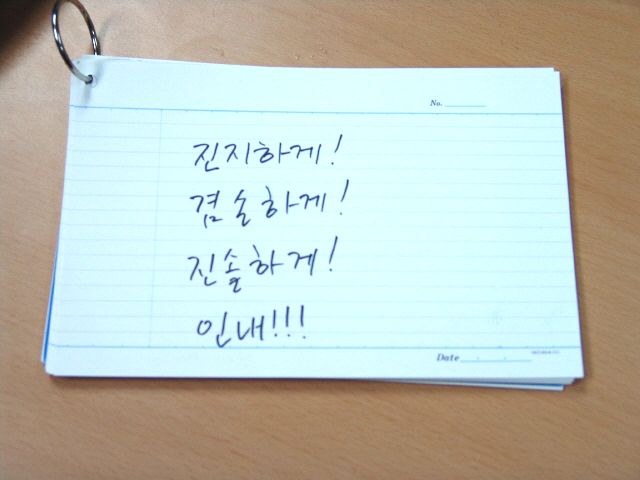 No.
진지하게!
겸손하게!
진솔하게!
인내!!!
Date . .